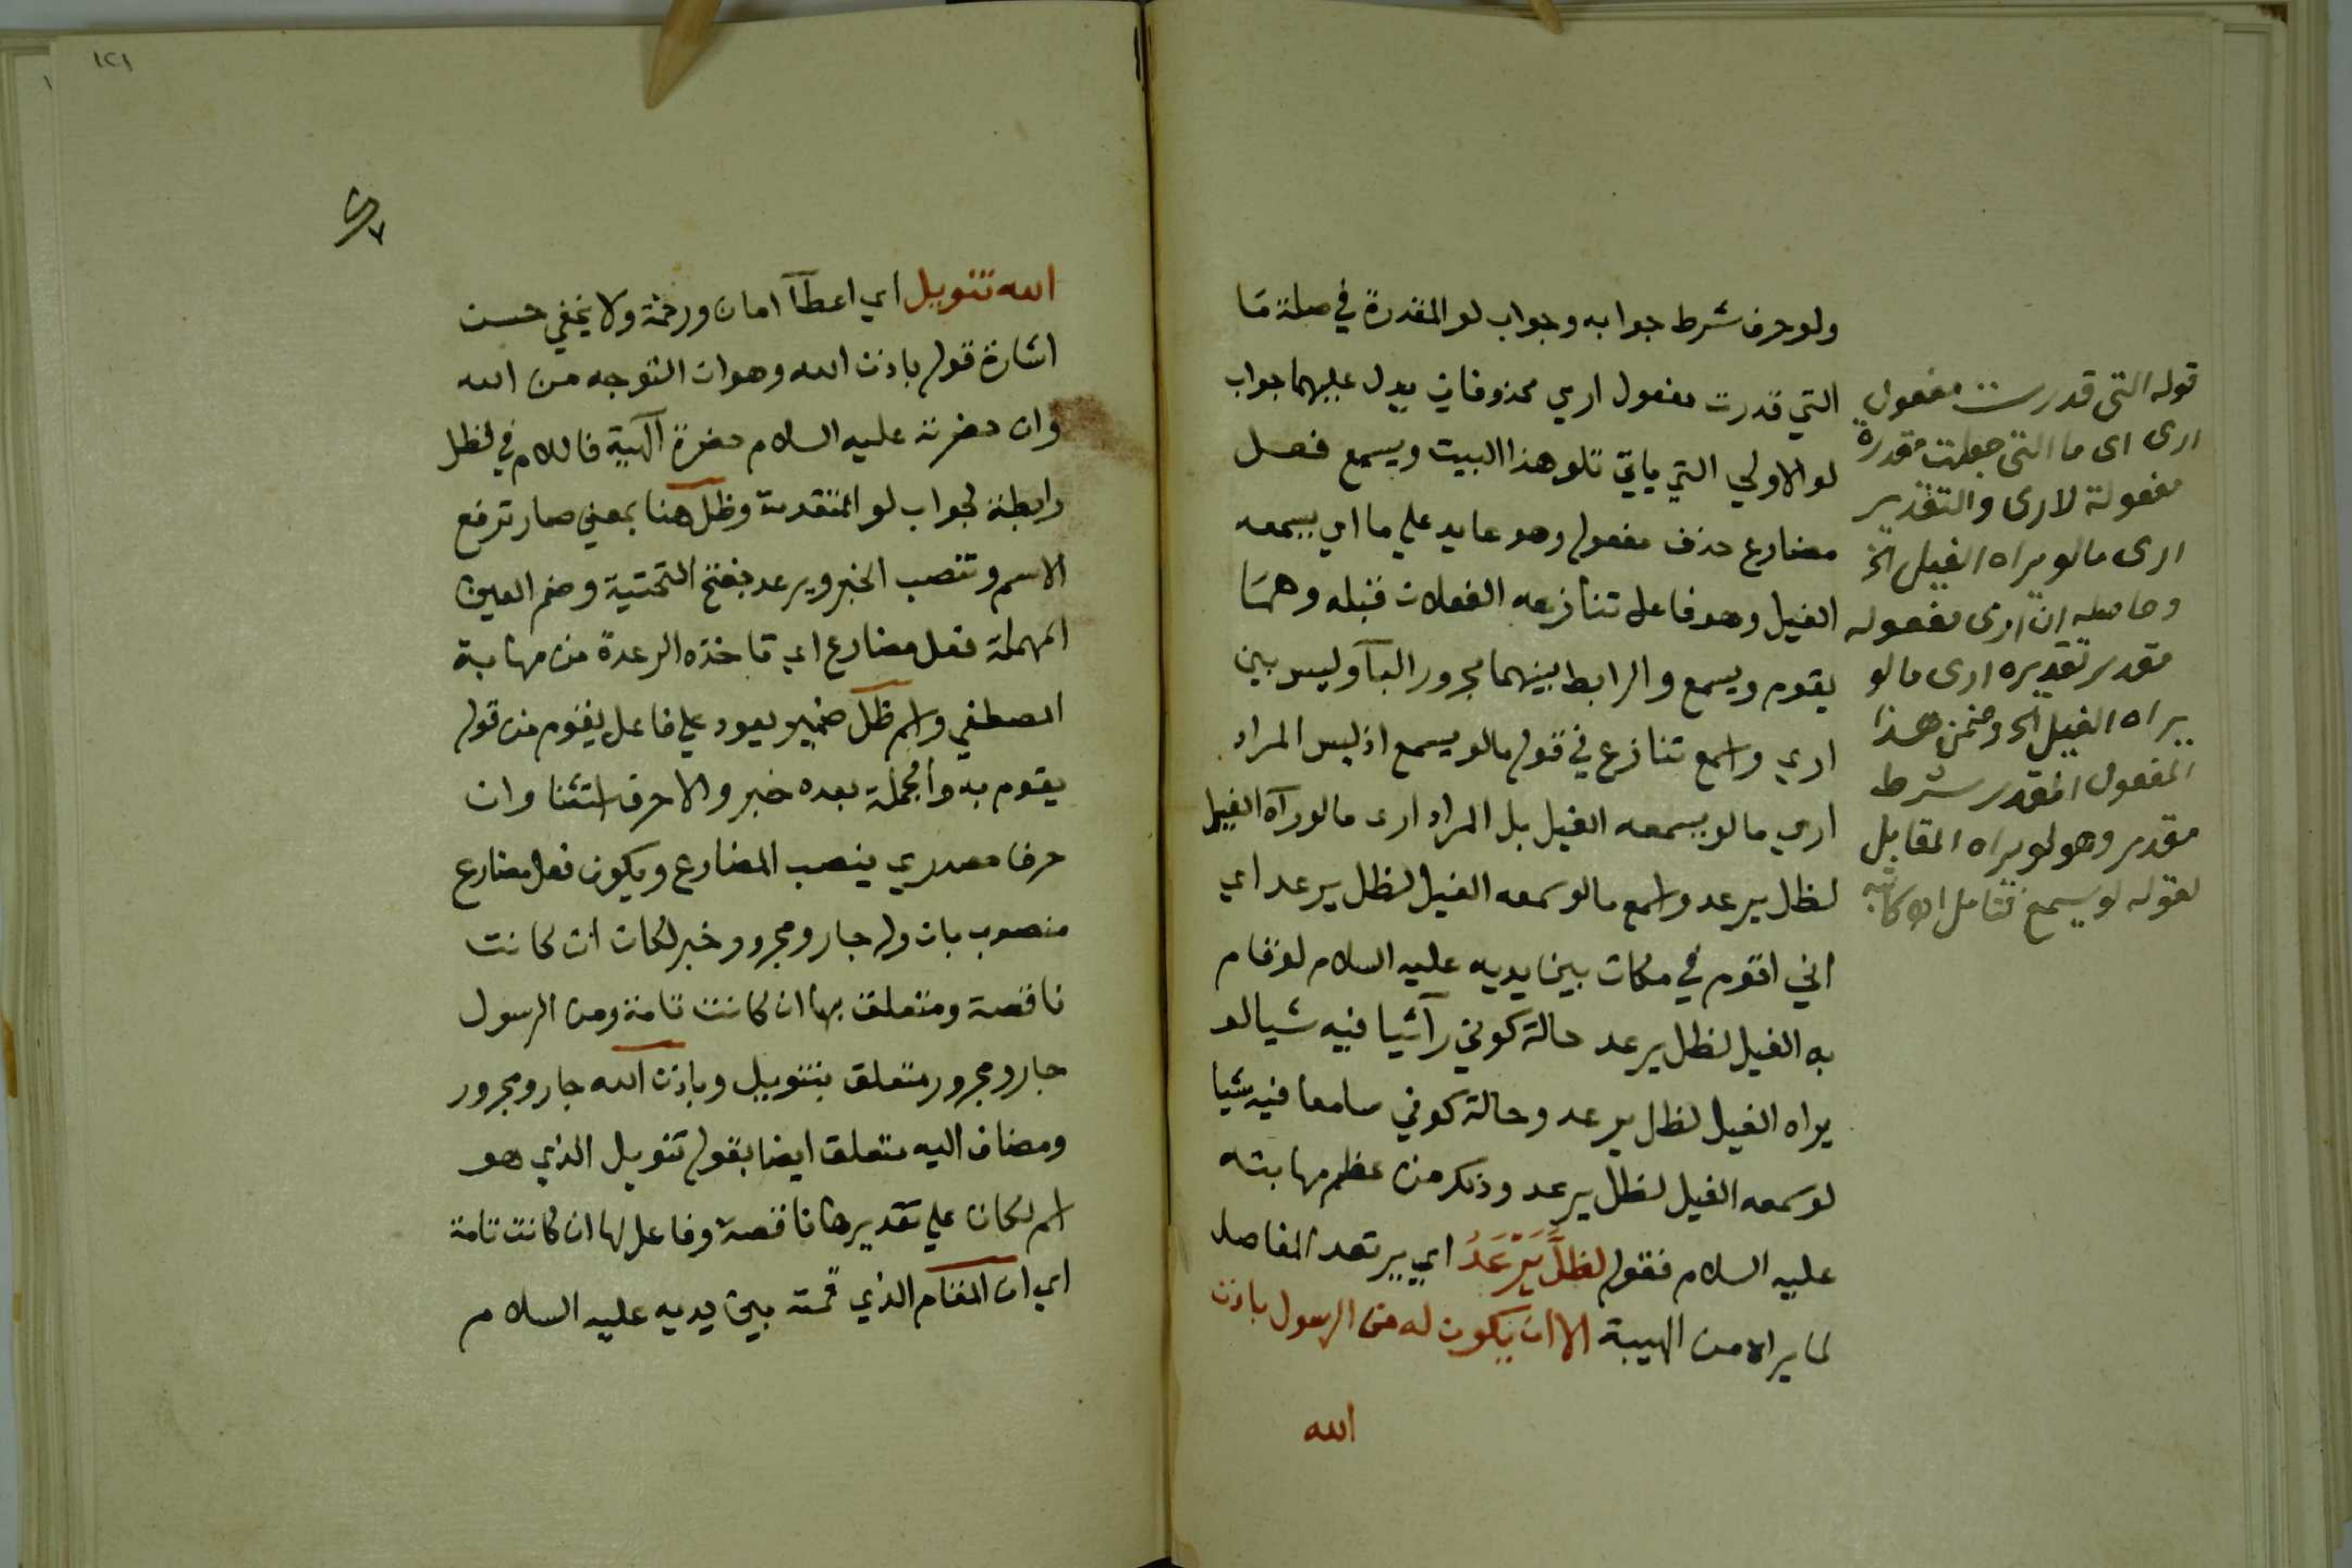 ولو حرف شرط جوابه وجواب لو المقدرة في صلة ما
التي قدرت مفعول اري محذوفان يدل عليهما جواب
لو الاولي التي ياتي تلو هذا البيت ويسمع فعل
مضارع حذف مفعوله وهو عايد علي ما اي يسمعه
الفيل وهو فاعل تنازعه الفعلان قبله وهما
يقوم ويسمع والرابط بينهما مجرور البآ وليس بين
اري واسمع تنازع في قوله مالو يسمع اذ ليس المراد
اري مالو يسمعه الفيل بل المراد ارى مالو رآه الفيل
لظل يرعد واسمع مالو سمعه الفيل لظل يرعد اي
اني اقوم في مكان بين يديه عليه السلام لو قام
به الفيل لظل يرعد حالة كوني رآئيا فيه شيا لو
يراه الفيل لظل يرعد وحالة كوني سامعا فيه شيا
لو سمعه الفيل لظل يرعد وذلك من عظم مهابته
عليه السلام فقوله لظل يَرْعَدُ اي يرتعد المفاصل
لما يراه من الهيبة الا ان يكون له من الرسول باذن
الله
قوله التى قدرت مفعول
ارى اى ما التى جعلت مقدرة
مفعولة لارى والتقدير
ارى مالو يراه الفيل الخ
وحاصله ان ارى مفعوله
مقدر تقديره ارى مالو
يراه الفيل الخ وضمن هذا
المفعول المقدر شرط
مقدر وهو لو يراه المقابل
لقوله لو يسمع فتامل اه كاتبه
١٢١
الله تنويل اي اعطآ امان ورحمة ولا يخفي حسن
اشارة قوله باذن الله وهو ان التوجه من الله
وان حضرته عليه السلام حضرة آلهية فاللام في لظل
رابطة لجواب لو المتقدمة وظل هنا بمعني صار ترفع
الاسم وتنصب الخبر ويرعد بفتح التحتية وضم العين
المهملة فعل مضارع اي تاخذه الرعدة من مهابة
المصطفي واسم ظل ضمير يعود علي فاعل يقوم من قوله
يقوم به والجملة بعده خبر والا حرف استثنا وان
حرف مصدري ينصب المضارع ويكون فعل مضارع
منصوب بان وله جار ومجرور خبر لكان ان كانت
ناقصة ومتعلق بها ان كانت تامة ومن الرسول
جار ومجرور متعلق بتنويل وباذن الله جار ومجرور
ومضاف اليه متعلق ايضا بقوله تنويل الذي هو
اسم لكان علي تقديرها ناقصة وفاعل لها ان كانت تامة
اي ان المقام الذي قمته بين يديه عليه السلام